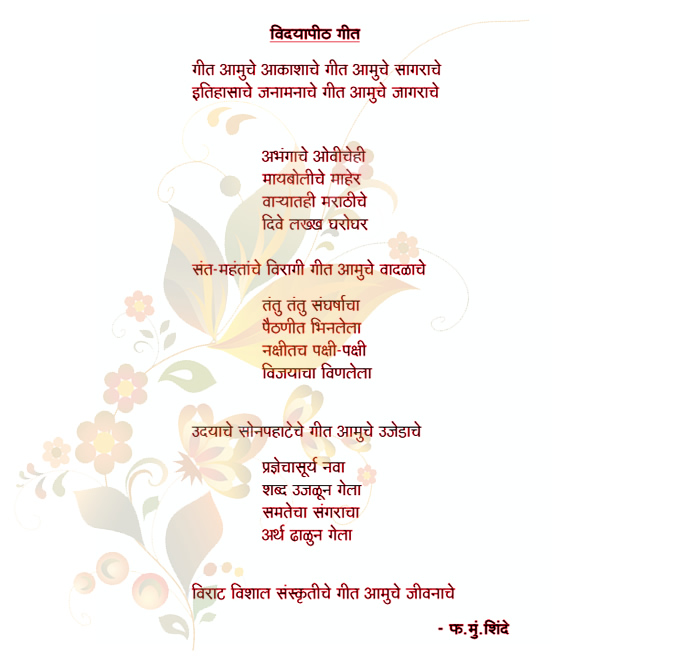 विदयापीठ गीत
गीत आमुचे आकाशाचे गीत आमुचे सागराचे
इतिहासाचे जनामनाचे गीत आमुचे जागराचे
अभंगाचे ओवीचेही
मायबोलीचे माहेर
वाऱ्यातही मराठीचे
दिवे लख्ख घरोघर
संत-महंतांचे विरागी गीत आमुचे वादळाचे
तंतु तंतु संघर्षाचा
पैठणीत भिनतेला
नक्षीतच पक्षी-पक्षी
विजयाचा विणतेला
उदयाचे सोनपहाटेचे गीत आमुचे उजेडाचे
प्रज्ञेचासूर्य नवा
शब्द उजळून गेला
समतेचा संगराचा
अर्थ ढाळुन गेला
विराट विशाल संस्कृतीचे गीत आमुचे जीवनाचे
- फ.मुं.शिंदे